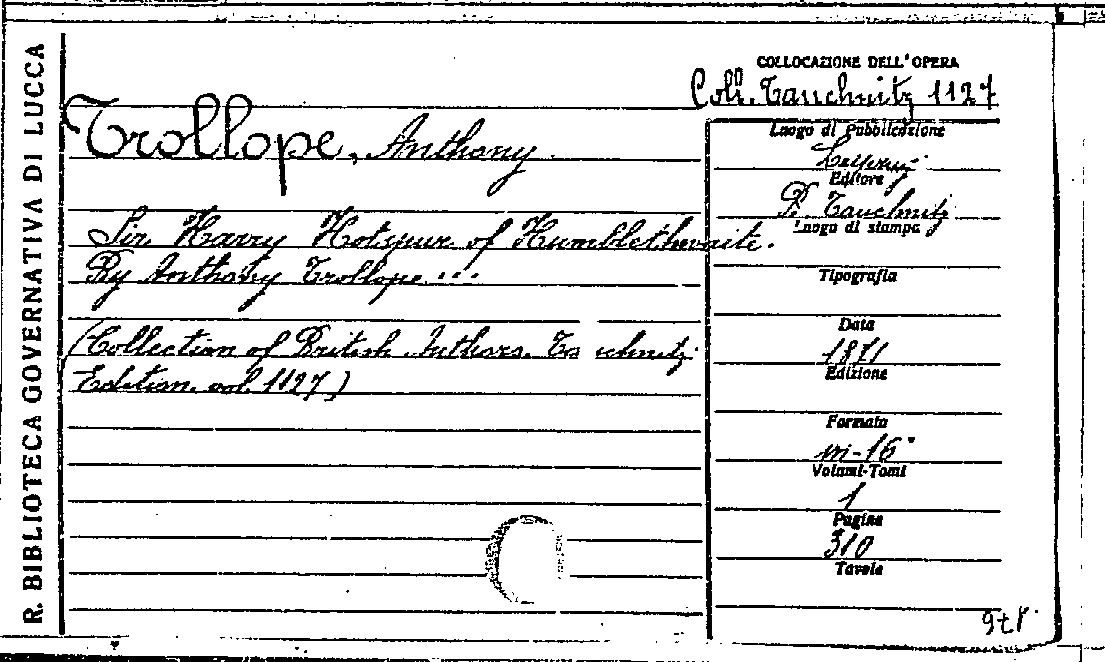 R. BIBLIOTECA GOVERNATIVA DI LUCCA
COLLOCAZIONE DELL'OPERA
Coll. Tauchnitz 1127
Trollope, Anthony.
Sir Harry Hotspur of Humblethwaite.
By Anthony Trollope ...
(Collection of British Authors. Ta uchnitz
Edition. vol. 1127)
Luogo di Pubblicazione
Editore
B. Tauchnitz
Luogo di stampa
Tipografia
Data
1871
Edizione
Formato
in-16°
Volumi-Tomi
1
Pagine
310
Tavole